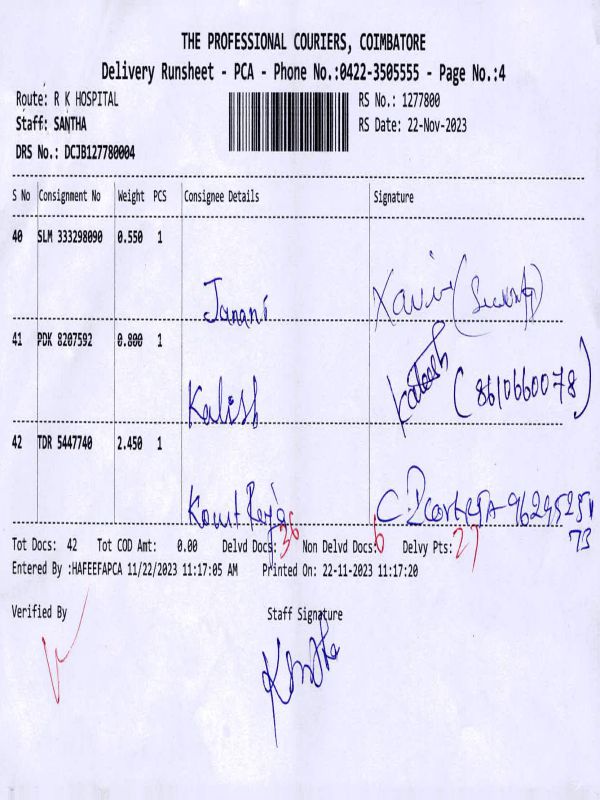 THE PROFESSIONAL COURIERS, COIMBATORE
Delivery Runsheet - PCA - Phone No.:0422-3505555 - Page No.:4
Route: R K HOSPITAL RS No.: 1277800
Staff: SANTHA RS Date: 22-Nov-2023
DRS No.: DCJB127780004
S No Consignment No Weight PCS Consignee Details Signature
40 SLM 333298090 0.550 1
Janani Xavier
41 PDK 8207592 0.800 1
Kalish Kalish (8610660078)
42 TDR 5447740 2.450 1
Tot Docs: 42 Tot COD Amt: 0.00 Delvd Docs: 36 Non Delvd Docs: 6 Delvy Pts: 27
73
Entered By :HAFEEFAPCA 11/22/2023 11:17:05 AM Printed On: 22-11-2023 11:17:20
Verified By Staff Signature